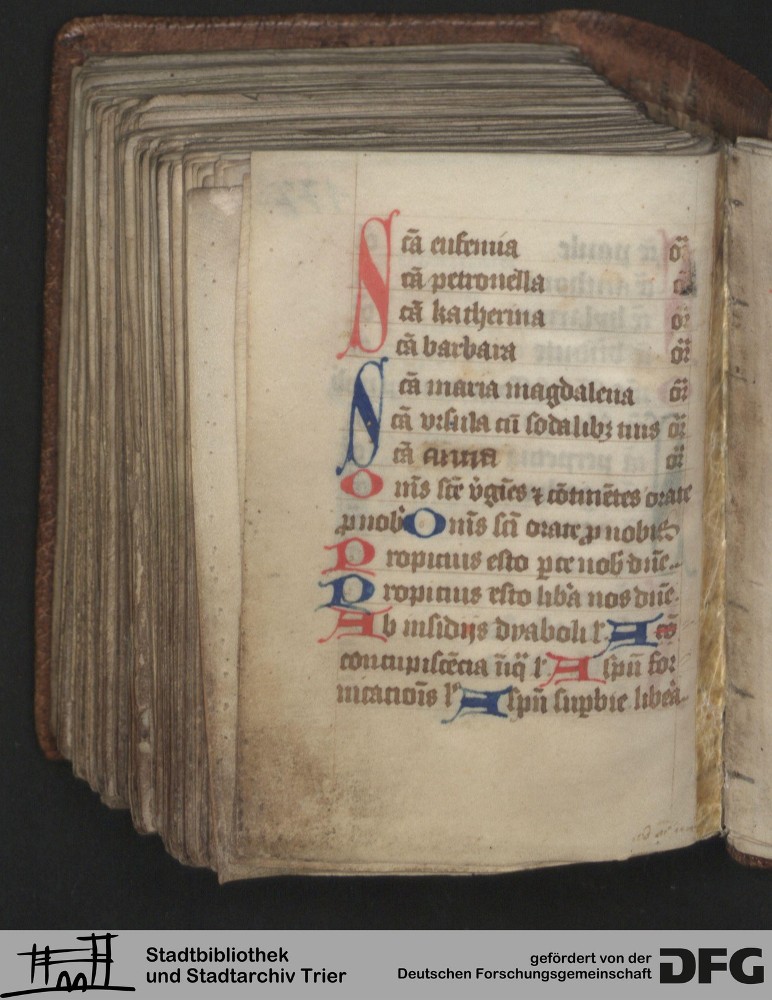 Scā eufemia or̄
scā petronella or̄
scā katherina or̄
scā barbara or̄
Scā maria magdalena or̄
scā vrsula cū sodalibꝫ tuis or̄
scā anna or̄
Om̄s sc̄e v̾gīes ⁊ cōtinētes orate
ꝓ nob̾ Om̄s sc̄i orate ꝓ nobis
Propicius esto ꝑce nob̾ dn̄e
Propicius esto lib̾a nos dn̄e
Ab insidijs dyaboli l̾ A
concupiscēcia l̾ A sp̄u for
nicacioīs l̾ A sp̄u suꝑbie libe̾a
Stadtbibliothek
und Stadtarchiv Trier
gefördert von der
Deutschen Forschungsgemeinschaft
DFG